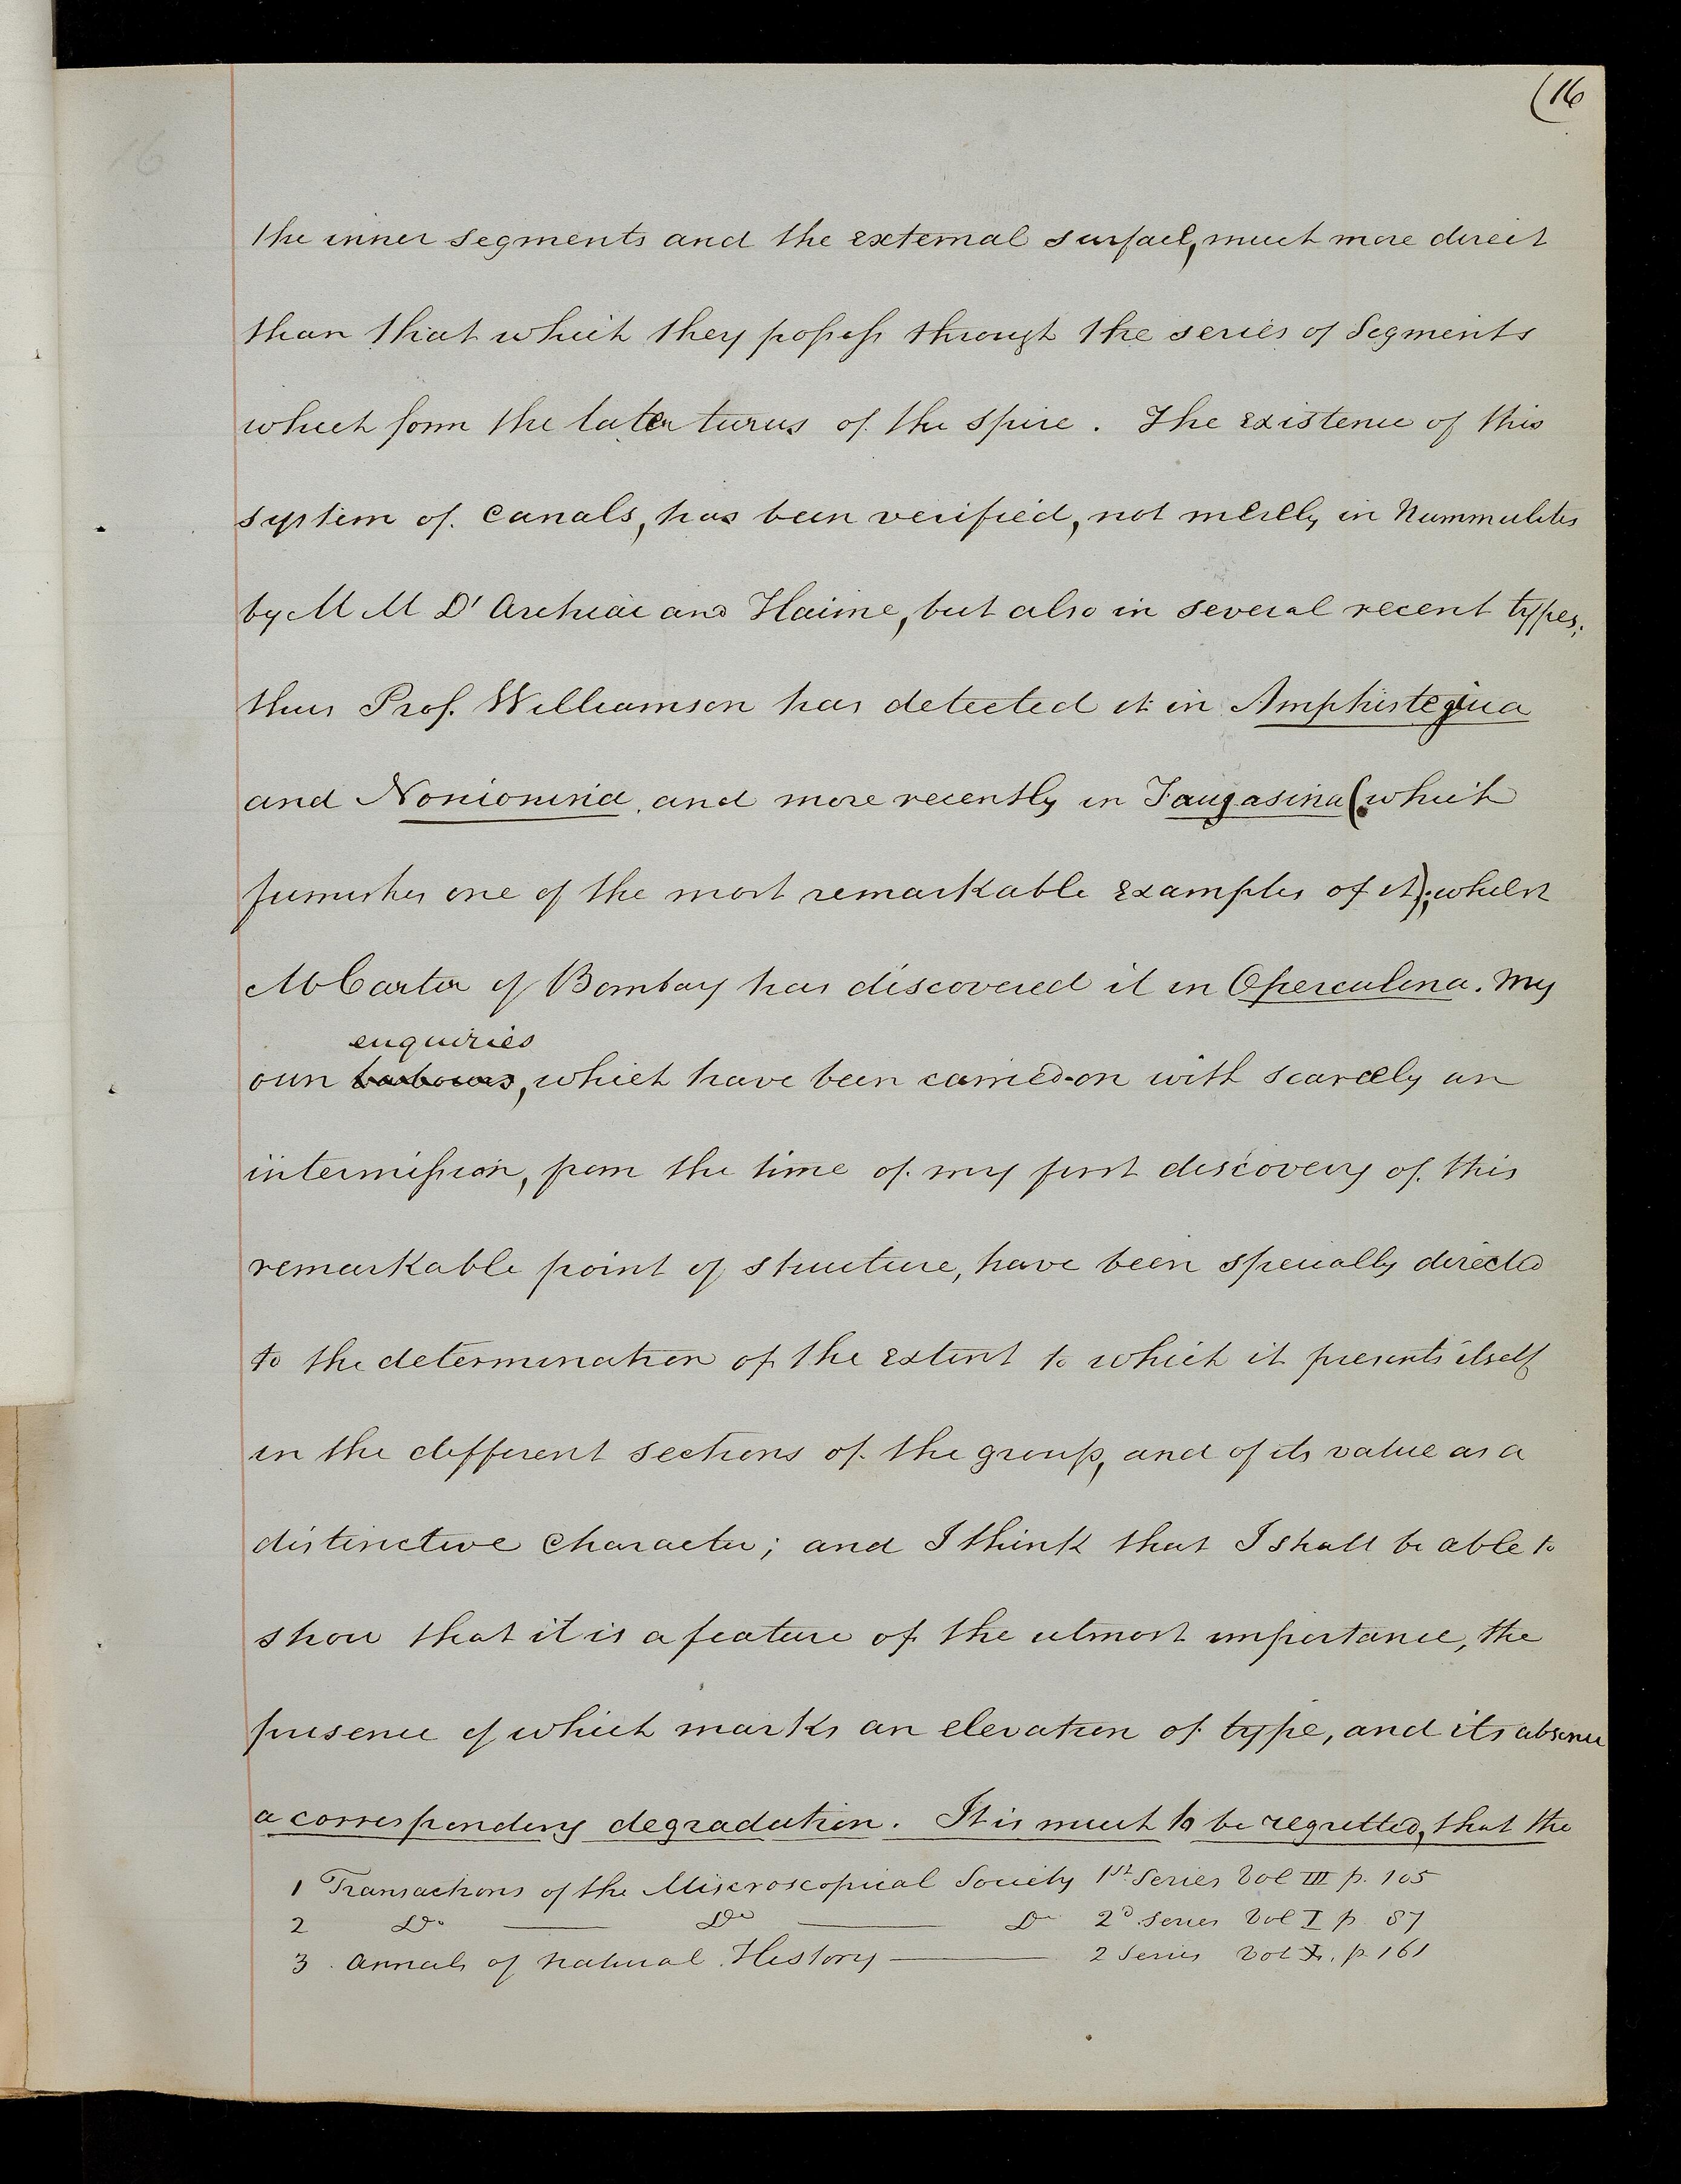 (16
16
the inner segments and the external surface, much more direct
than that which they possess through the series of Segments
which form the later turns of the spire. The existence of this
system of canals, has been verified, not merely in Nummulites
by M M D'Archiac and Haime, but also in several recent types;
thus Prof. Williamson has detected it in Amphistegina
and Nonionina, and more recently in Faujasina (which
furnishes one of the most remarkable examples of it); whilst
Mr Carter of Bombay has discovered it in Operculina. My
enquiries
own labours, which have been carried on with scarcely an
intermission, from the time of my first discovery of this
remarkable point of structure, have been specially directed
to the determination of the extent to which it presents itself
in the different sections of the group, and of its value as a
distinctive character; and I think that I shall be able to
show that it is a feature of the utmost importance, the
presence of which marks an elevation of type, and its absence
a corresponding degradation. It is much to be regretted, that the
1 Transactions of the Miscroscopical Society 1st Series Vol III p. 105
2 Do — Do — Do 2d Series Vol I p 87
3 Annals of Natural History — 2 Series Vol X. p. 161